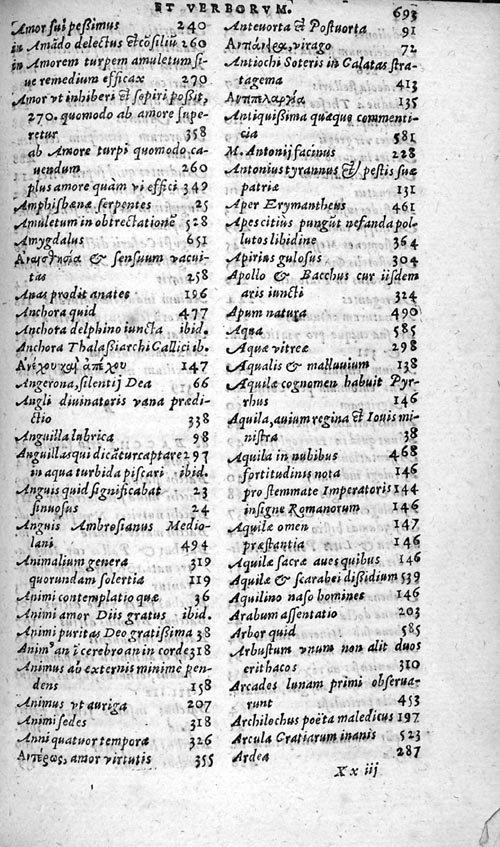 ET VERBORVM. 693
Amor sui peßimus 240
in Amādo delectus et cōsiliū 260
in Amorem turpem amuletum si-
ue remedium efficax 270
Amor vt inhiberi & sopiri poßit,
270. quomodo ab amore supe-
retur 358
ab Amore turpi quomodo ca-
uendum 260
plus amore quàm vi effici 349
Amphisbænæ serpentes 25
Amuletum in obtrectationē 528
Amygdalus 651
Αναισθησία & sensuum vacui-
tas 258
Anas prodit anates 196
Anchora quid 477
Anchora delphino iuncta ibid.
Anchora Thalaßiarchi Gallici ib.
Ανέχου καὶ ἀπέχου 147
Angerona, silentij Dea 66
Angli diuinatoris vana prædi-
ctio 338
Anguilla lubrica 98
Anguillas qui dicātur captare 297
in aqua turbida piscari ibid.
Anguis quid significabat 23
sinuosus 24
Anguis Ambrosianus Medio-
lani 494
Animalium genera 319
quorundam solertia 119
Animi contemplatio quæ 36
Animi amor Diis gratus ibid.
Animi puritas Deo gratißima 38
Anim9 an ī cerebro an in corde 318
Animus ab externis minimè pen-
dens 158
Animus vt auriga 207
Animi sedes 318
Anni quatuor tempora 326
Αντέρως, amor virtutis 355
Anteuorta & Postuorta 91
Αντιάνειρα, virago 72
Antiochi Soteris in Galatas stra-
tagema 413
135
Antiquißima quæque commenti-
cia 581
M. Antonij facinus 228
Antonius tyrannus & pestis suæ
patriæ 131
Aper Erymantheus 461
Apes citius pungūt nefanda pol-
lutos libidine 364
Apirius gulosus 304
Apollo & Bacchus cur iisdem
aris iuncti 324
Apum natura 490
Aqua 585
Aquæ vitreæ 298
Aqualis & malluuium 138
Aquilæ cognomen habuit Pyr-
rhus 146
Aquila, auium regina & Iouis mi-
nistra 38
Aquila in nubibus 468
fortitudinis nota 146
pro stemmate Imperatoris 144
insigne Romanorum 146
Aquilæ omen 147
præstantia 146
Aquilæ sacræ aues quibus 146
Aquilæ & scarabei dißidium 539
Aquilino naso homines 146
Arabum assentatio 203
Arbor quid 585
Arbustum vnum non alit duos
erithacos 310
Arcades lunam primi obserua-
runt 453
Archilochus poëta maledicus 197
Arcula Gratiarum inanis 523
Ardea 287
Xx iij